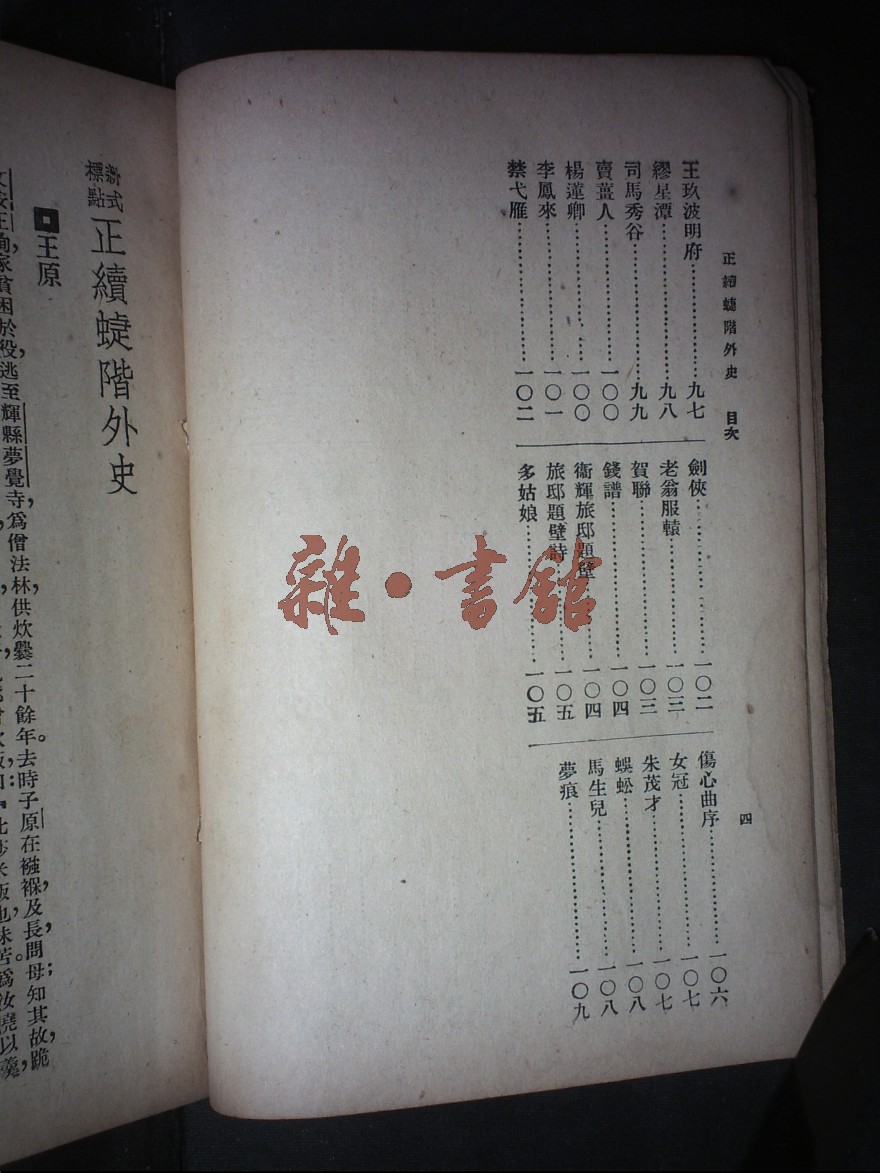 正續蜨階外史 目次
四
王玖波明府……九七
繆星潭……九八
司馬秀谷……九九
賣薑人……一〇〇
楊蓮卿……一〇〇
李鳳來……一〇一
禁弋雁……一〇二
劍俠……一〇二
老翁服轅……一〇三
賀聯……一〇三
錢譜……一〇四
衞輝旅邸題壁……一〇四
旅邸題壁詩……一〇五
多姑娘……一〇五
傷心曲序……一〇六
女冠……一〇七
朱茂才……一〇七
蜈蚣……一〇八
馬生兒……一〇八
夢痕……一〇九
雜·書館
新式標點 正續蜨階外史
王原
家貧困於役，逃至輝縣夢覺寺，爲僧法林供炊爨二十餘年。去時子原在襁褓，及長，問母；知其故，跪